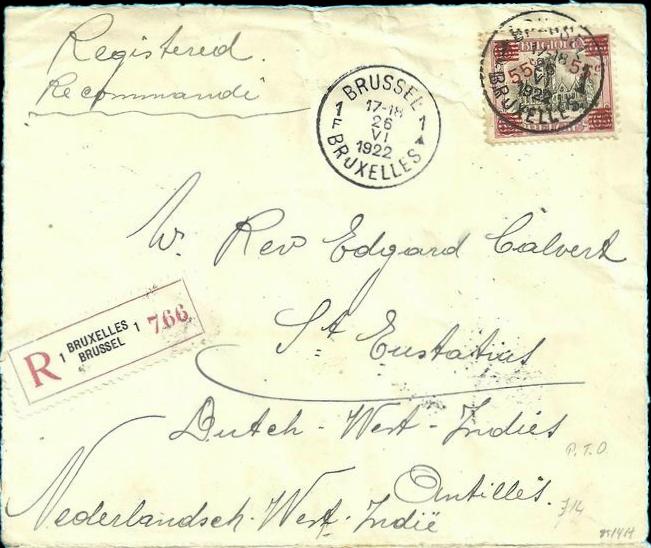 Registered.
Recommandé
BRUSSEL
1 1
17-18
26
VI
1922
F
BRUXELLES
BELGIQUE
55c 55c
1922
BRUXELLES
W. Rev Edgard Calvert
St Eustatius
R 1 BRUXELLES 1 766
BRUSSEL
Dutch-West-Indies
P.T.O.
Antilles.
Nederlandsch-West-Indië
714